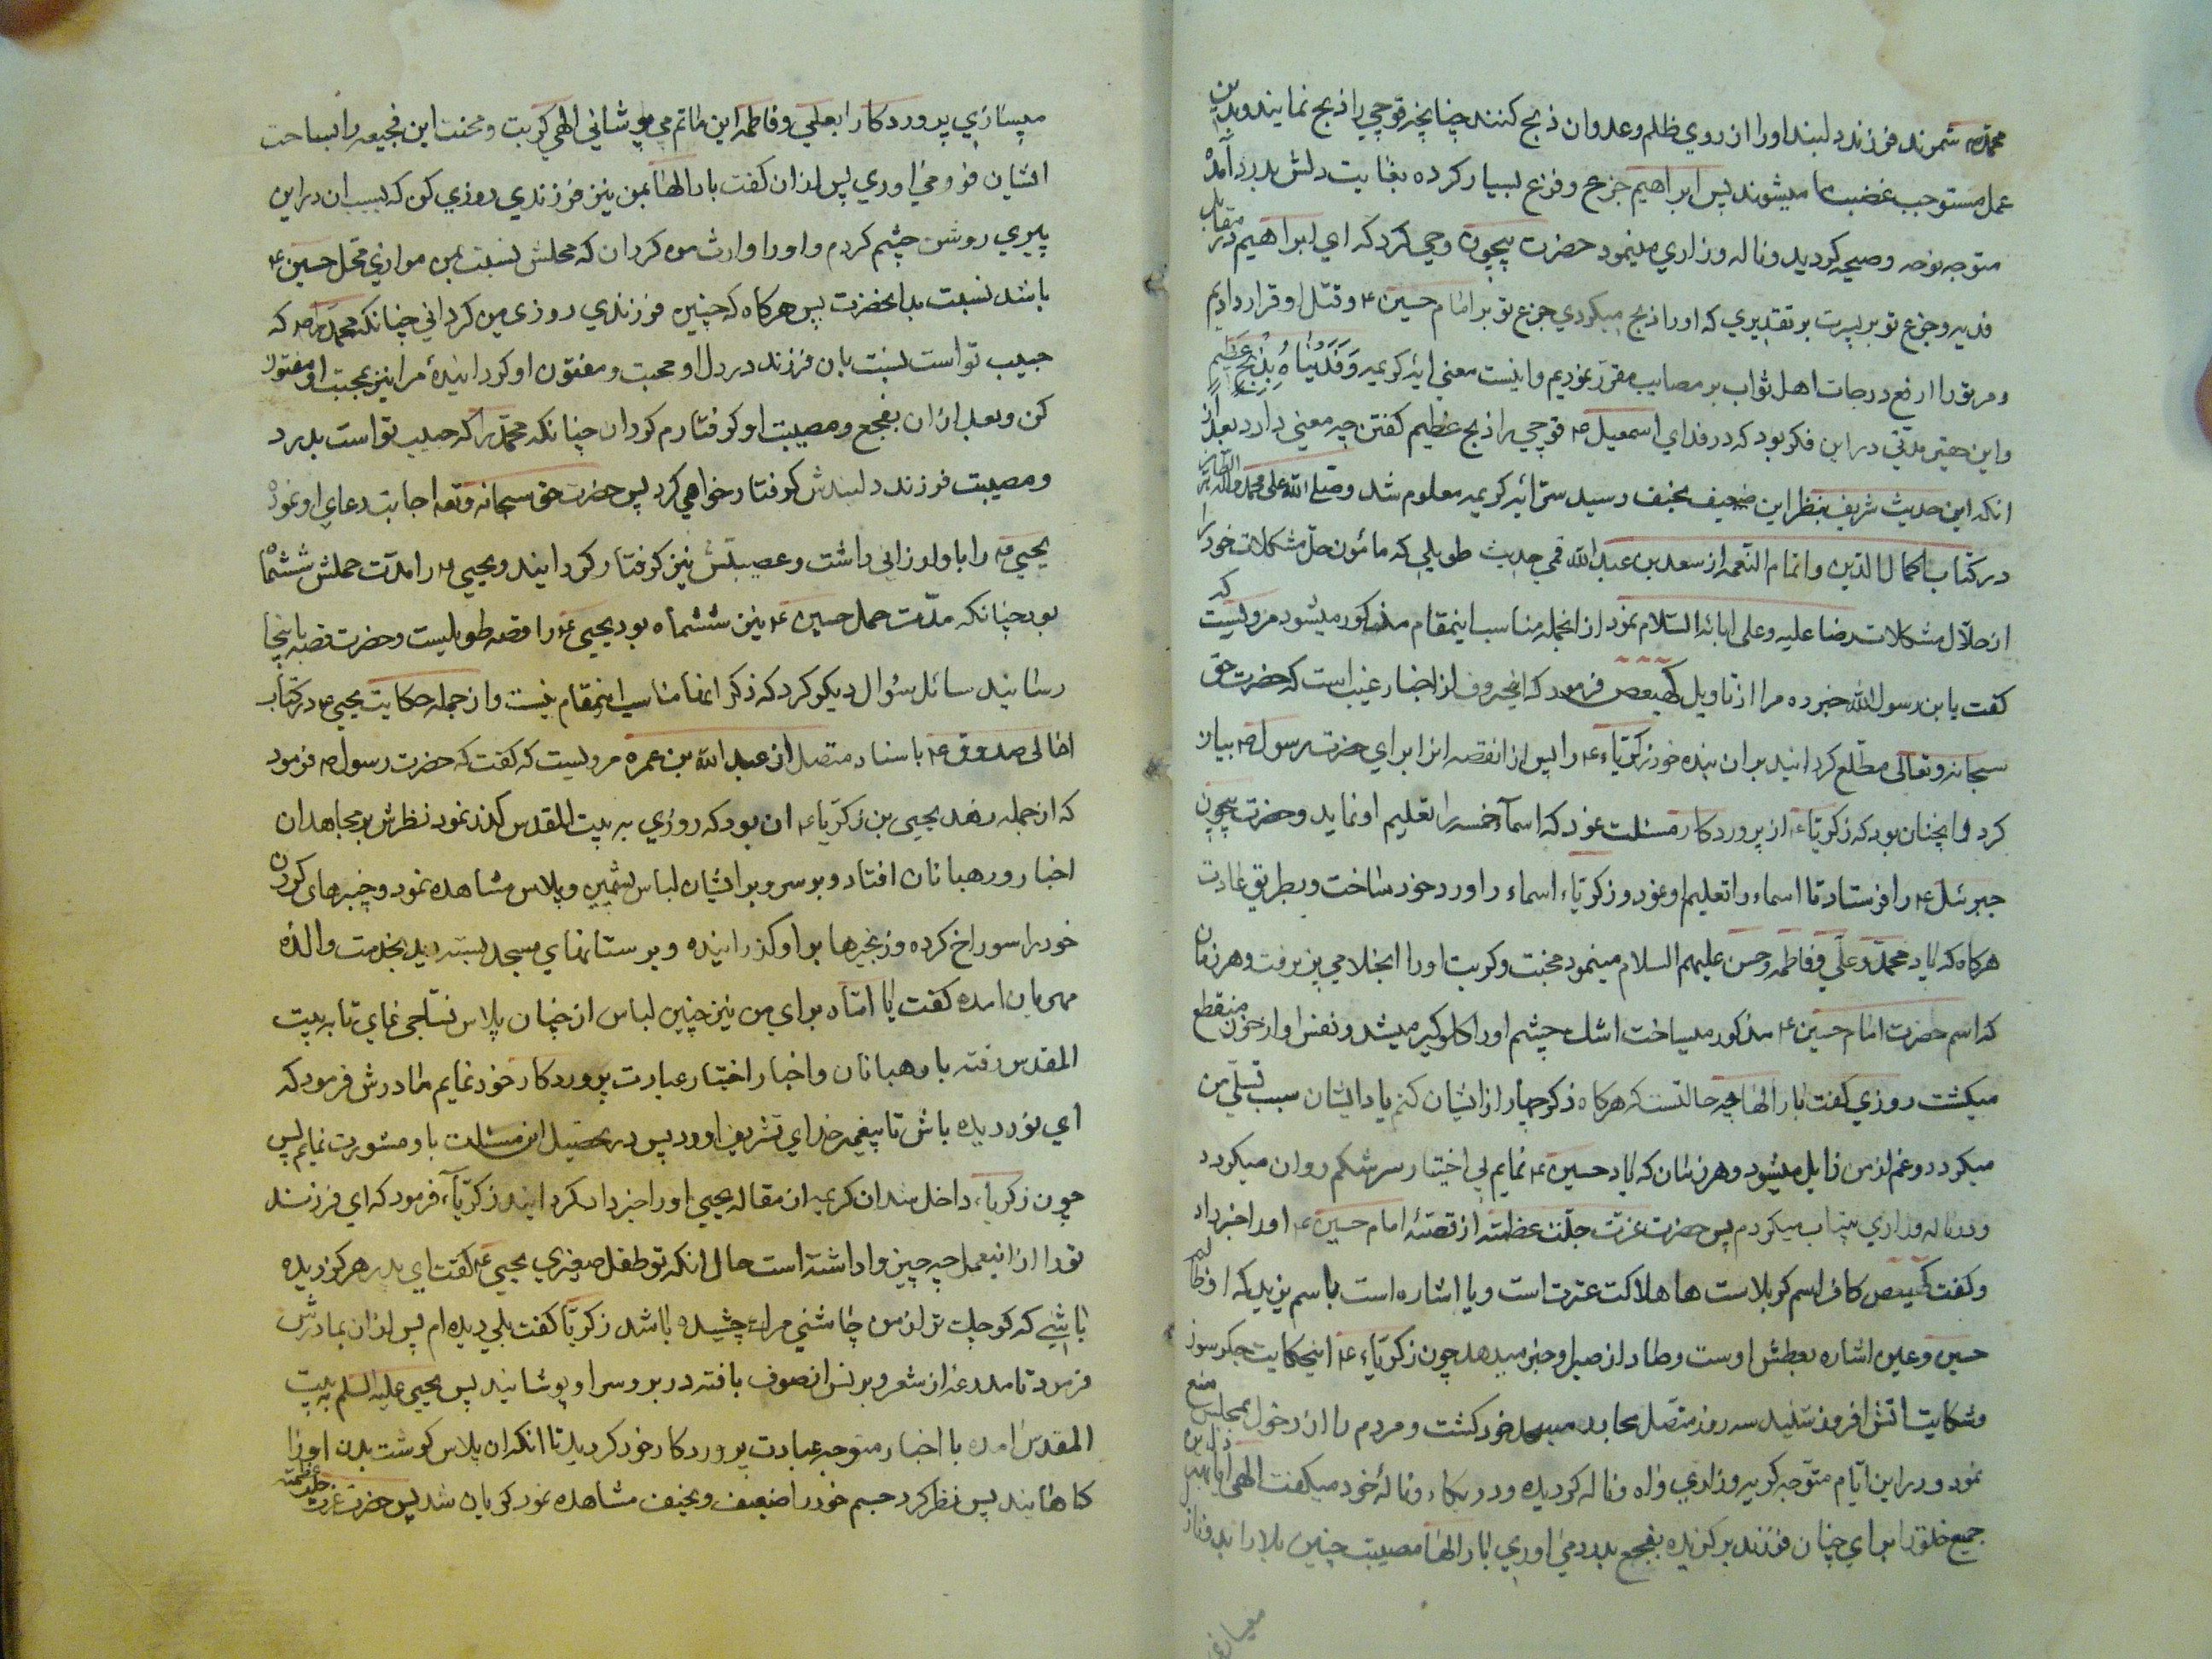 محمد ص شمرند فرزند دلبند او را از روی ظلم و عدوان ذبح کنند چنانچه قوچی را ذبح نمایند و بدین
عمل مستوجب غضب ما میشوند پس ابراهیم جزع و فزع بسیار کرده بغایت دلش بدرد آمده
متوجه نوحه و صیحه کردید و ناله و زاری مینمود حضرت بیچون وحی کرد که ای ابراهیم در مقابل
فدیه و جزع تو بر پسرت بر تقدیری که او را ذبح میکردی جزع تو بر امام حسین ع و قتل او قرار دادیم
و مر تو را ارفع درجات اهل ثواب بر مصایب مقرر نمودیم و اینست معنی آیه کریمه وَفَدَیْنَاهُ بِذِبْحٍ عَظِیمٍ
و این حقیر مدتی در این فکر بود که در فدای اسمعیل ع قوچی را ذبح عظیم کفتن چه معنی دارد بعد از
انکه این حدیث شریف بنظر این ضعیف نحیف رسید سر آیه کریمه معلوم شد و صلی الله علی محمد و آله الطاهرین
در کتاب اکمال الدین و اتمام النعمه از سعد بن عبد الله قمی حدیث طویلی که مأمون حل مشکلات خود را
از حلال مشکلات رضا علیه و علی ابائه السلام نمود از انجمله مناسب اینمقام مذکور میشود مرویست که
کفت یا بن رسول الله خبر ده مرا از تاویل کهیعص فرمود که این حروف از اخبار غیب است که حضرت حق
سبحانه و تعالی مطلع کردانید بر ان بنده خود زکریاء ع را پس از ان قصه انرا برای حضرت رسول ص بیان
کرد و انچنان بود که زکریاء ع از پروردکار مسئلت نمود که اسماء خمسه را تعلیم او نماید و حضرت بیچون
جبرئیل ع را فرستاد تا اسماء را تعلیم او نمود و زکریاء اسماء را ورد خود ساخت و بطریق عادت
هرکاه که یاد محمد و علی و فاطمه و حسن علیهم السلام مینمود محنت و کربت او را انجلا می پذیرفت و هر زمان
که اسم حضرت امام حسین ع مذکور میساخت اشک چشم او را کلوکیر میشد و نفس او از خون منقطع
میکشت روزی کفت بار الها چه حالتست که هرکاه ذکر چهار از ایشان کنم یاد ایشان سبب تسلی من
میکردد و غم از من زایل میشود و هر زمان که یاد حسین ع نمایم بی اختیار سرشکم روان میکردد
و در ناله و زاری بیتاب میکردم پس حضرت عزت جلت عظمته از قصه امام حسین ع او را خبر داد
و کفت کهیعص کاف اسم کربلاست ها هلاکت عترت است و یا اشاره است باسم یزید که او ظالم
حسین و عین اشاره بعطش اوست و صاد از صبر او خبر میدهد چون زکریاء ع این حکایت جکر سوز
و شکایت اتش افروز شنید سه روز متصل محابد مسجد خود کشت و مردم را از دخول بمجلس منع
نمود و در این ایام متوجه کریه و زاری و اه و ناله کردیده و در بکاء و ناله خود میکفت الهی ایا بهترین
جمیع خلق را برای چنان فرزند برکزیده بفجع بدرد می اوری بار الها مصیبت چنین بلا را بدو نازل
میسازی پروردکارا بعلی و فاطمه این ماتم می پوشانی الهی کربت و محنت این فجیعه را بساحت
ایشان فرو می اوری پس از ان کفت بار الها بمن نیز فرزندی روزی کن که بسبب ان در این
پیری روشن چشم کردم و او را وارث من کردان که محلش نسبت بمن موازی محل حسین ع
باشد نسبت بدانحضرت پس هرکاه که چنین فرزندی روزی من کردانی چنانکه محمد را ص که
حبیب تو است نسبت بان فرزند در دل او محبت و مفتون او کردانیده مرا نیز بمحبت او مفتون
کن و بعد از ان بفجع و مصیبت او کرفتارم کردان چنانکه محمد را که حبیب تو است بدرد
و مصیبت فرزند دلبندش کرفتار خواهی کرد پس حضرت حق سبحانه و تعه اجابت دعای او نموده
یحیی ع را باو ارزانی داشت و بمصیبتش نیز کرفتار کردانید و یحیی ع را مدت حملش ششماه
بود چنانکه مدت حمل حسین ع نیز ششماه بود یحیی ع را قصه طویلیست و حضرت قصه باینجا
رسانید سائل سئوال دیکر کرد که ذکر انها مناسب اینمقام نیست و از جمله حکایت یحیی ع در کتاب
امالی صدوق ع باسناد متصل از عبد الله بن عمره مرویست که کفت که حضرت رسول ص فرمود
که از جمله زهد یحیی بن زکریاء ان بود که روزی به بیت المقدس کذر نمود نظرش بر مجاهدان
احبار و رهبانان افتاد و بر سر و بر ایشان لباس پشمین و پلاس مشاهده نمود و چنبرهای کردن
خود را سوراخ کرده و زنجیرها بر او کذرانیده و بر ستانهای مسجد بسته دید بخدمت والده
مهربان امده کفت ایا اماه برای من نیز چنین لباس از چنان پلاس نساجی نمای تا به بیت
المقدس رفته با رهبانان و احبار اختیار عبادت پروردکار خود نمایم مادرش فرمود که
ای نور دیده باش تا پیغمبر خدای تشریف اورد پس در تحصیل این مسئلت باو مشورت نمایم پس
چون زکریاء داخل شد ان کریمه از مقاله یحیی او را خبردار کردانید زکریاء فرمود که ای فرزند
تو را از اینعمل چه چیز واداشته است حال انکه تو طفل صغیری یحیی ع کفت ای پدر هرکز دیده
باشی که کوچک تر از من چاشنی مرک چشیده باشد زکریا کفت بلی دیده ام پس از ان بمادرش
فرمود تا مدرعه از شعر و برنس از صوف بافته در بر و سر او پوشانید پس یحیی علیه السلم به بیت
المقدس امده با احبار متوجه عبادت پروردکار خود کردید تا انکه ان پلاس کوشت بدن او را
کاهانید پس نظر کرد جسم خود را ضعیف و نحیف مشاهده نمود کریان شد پس حضرت عزت جلت عظمته